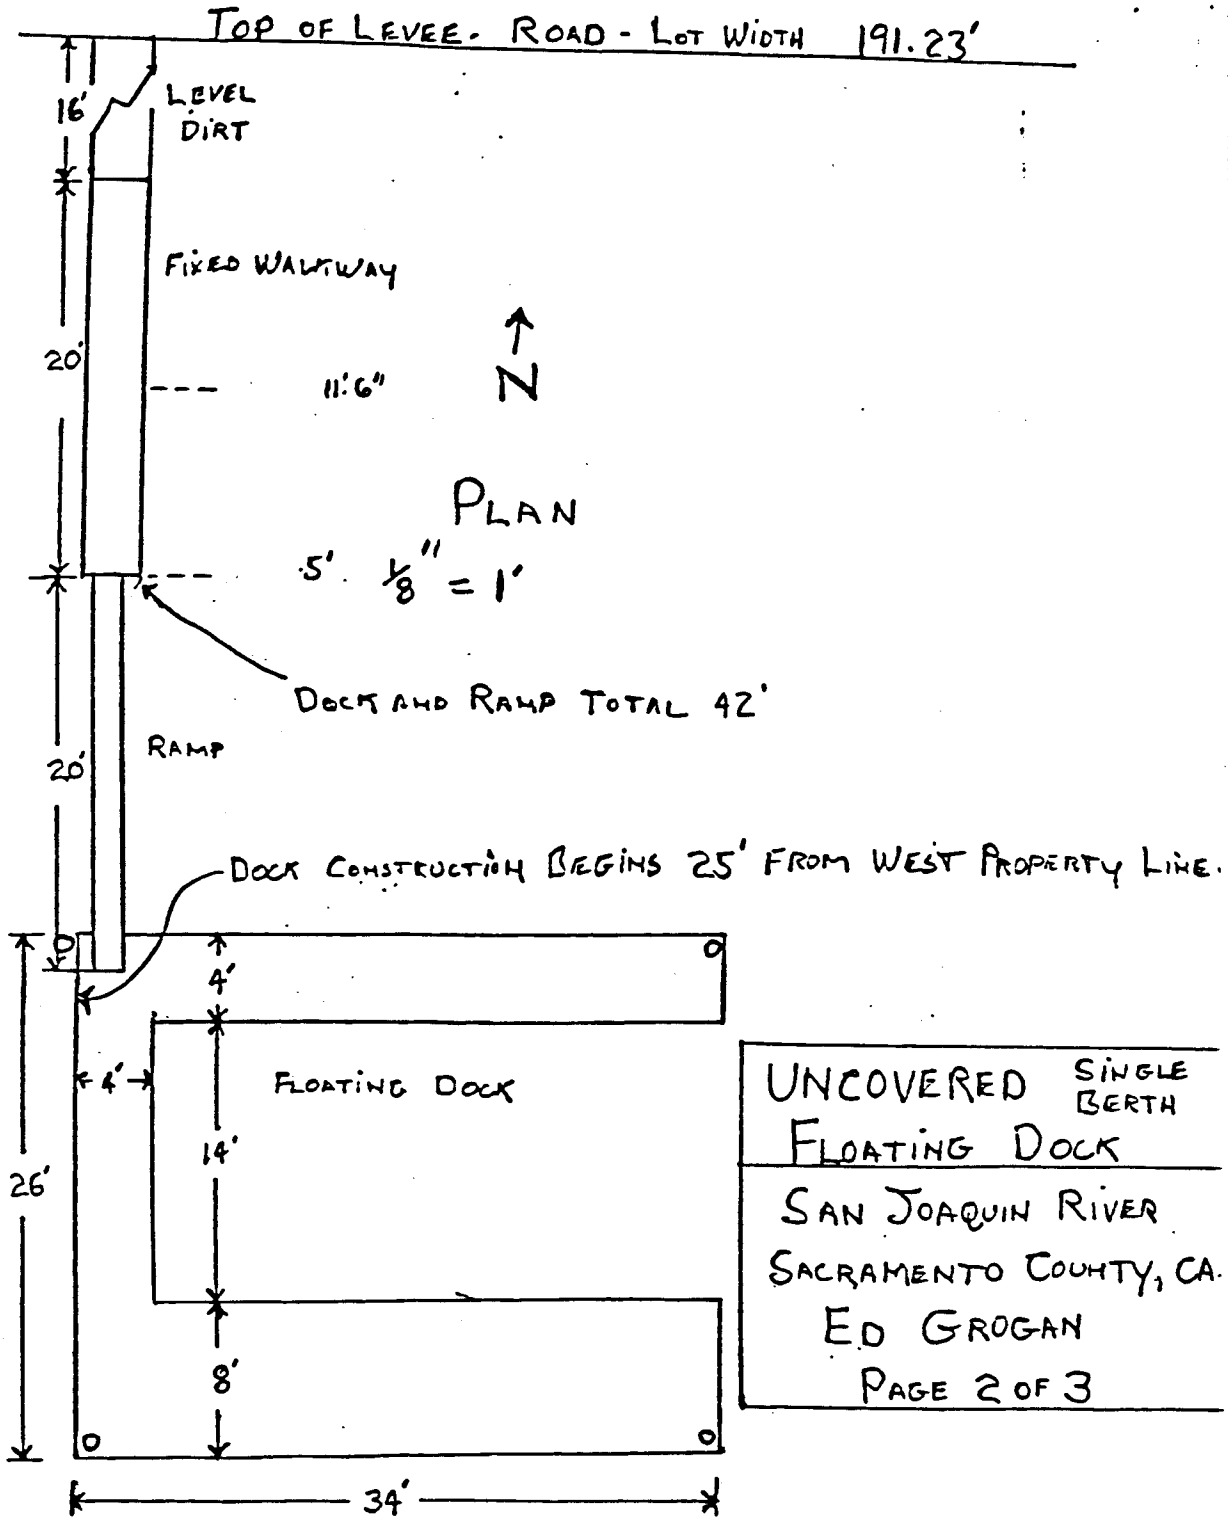 TOP OF LEVEE. ROAD - LOT WIDTH 191.23'
16'
LEVEL
DIRT
FIXED WALKWAY
20'
11'.6"
N
PLAN
.5' 1/8" = 1'
DOCK AND RAMP TOTAL 42'
RAMP
20'
DOCK CONSTRUCTION BEGINS 25' FROM WEST PROPERTY LINE.
4'
4'
FLOATING DOCK
14'
26'
8'
34'
UNCOVERED SINGLE
BERTH
FLOATING DOCK
SAN JOAQUIN RIVER
SACRAMENTO COUNTY, CA.
ED GROGAN
PAGE 2 OF 3